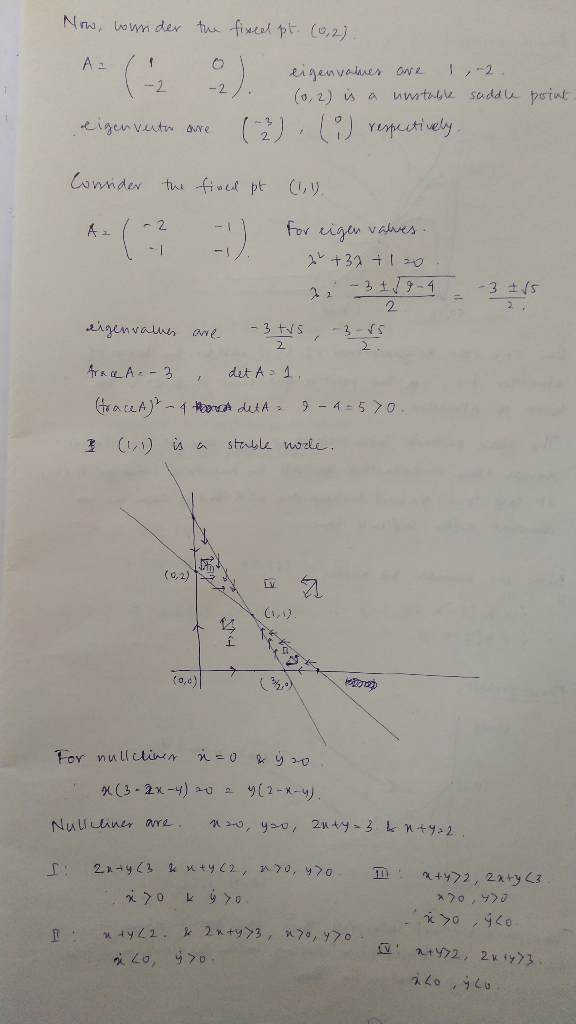 Now, consider the fixed pt. (0,2).
A = ( 1 0
-2 -2 ). eigenvalues are 1, -2.
(0,2) is a unstable saddle point.
eigenvector are ( -3
2 ), ( 0
1 ) respectively.
Consider the fixed pt (1,1).
A = ( -2 -1
-1 -1 ). For eigen values.
λ² + 3λ + 1 = 0.
λ = -3 ± √9-4 / 2 = -3 ± √5 / 2.
eigenvalues are -3+√5 / 2, -3-√5 / 2.
trace A = -3, det A = 1.
(trace A)² - 4 det A = 9 - 4 = 5 > 0.
(1,1) is a stable node.
(0,2)
III
IV
(1,1).
I
II
(0,0)
(3/2,0)
For nullclines ẋ=0 & ẏ=0.
x(3-2x-y) = 0 = y(2-x-y).
Nullclines are. x=0, y=0, 2x+y=3 & x+y=2.
I: 2x+y<3 & x+y<2, x>0, y>0
ẋ>0 & ẏ>0.
II: x+y<2. & 2x+y>3, x>0, y>0
ẋ<0, ẏ>0.
III: x+y>2, 2x+y<3
x>0, y>0
ẋ>0, ẏ<0.
IV: x+y>2, 2x+y>3.
ẋ<0, ẏ<0.